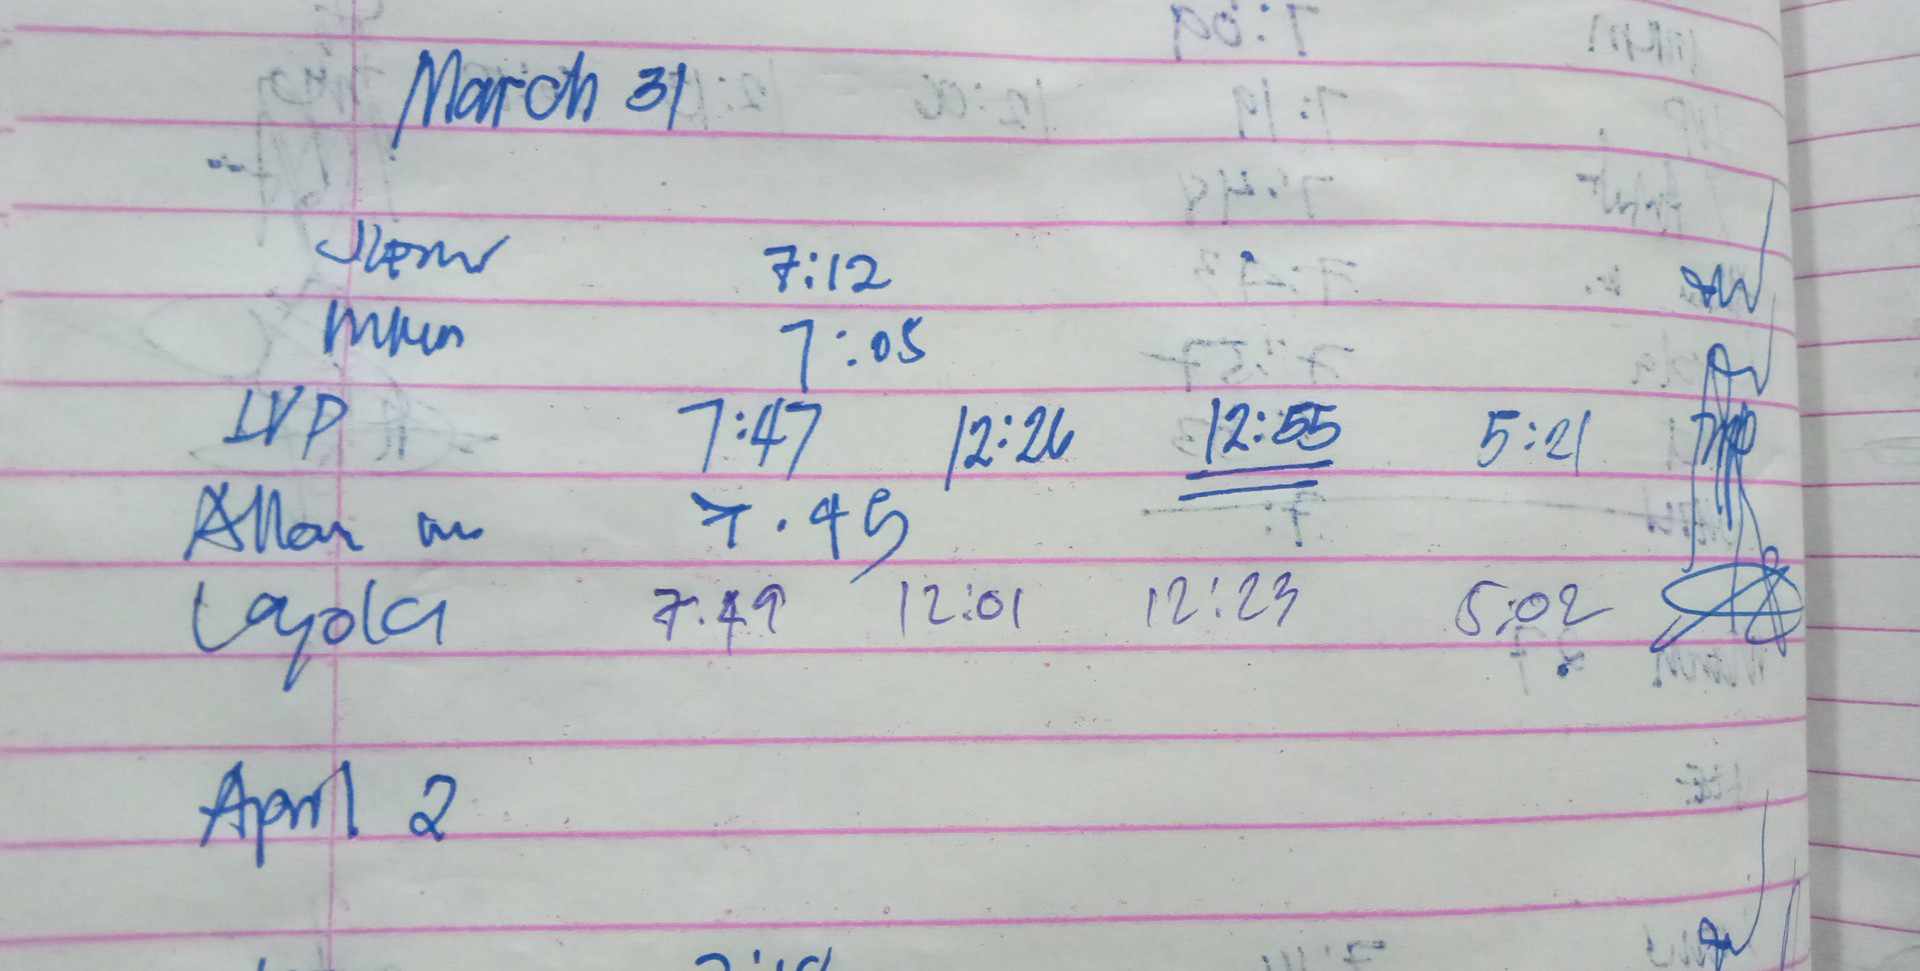 March 31
7:12
7:05
LVP 7:47 12:26 12:55 5:21
Allan m 7.45
Layola 7.49 12:01 12:23 5:02
April 2